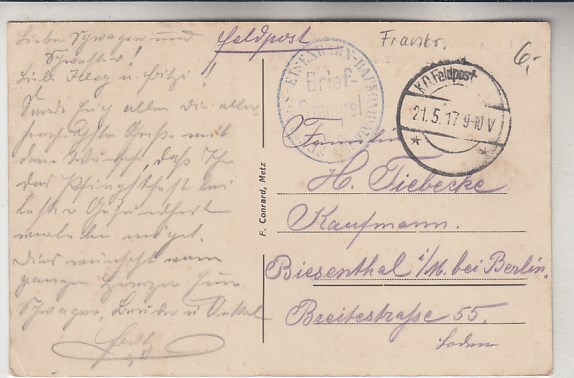 Liebe Schwager und
Schwester!
Sende Euch allen die aller
herzlichsten Grüße mit
dem Wunsche, daß Ihr
das Pfingstfest bei
bester Gesundheit
verleben möget.
Dies wünscht von
ganzen Herzen Euer
Schwager, Bruder u Onkel
Feldpost
Frankr.
6,-
Brief-
K.D.Feldpost
21.5.17 9-10V
F. Conrard, Metz
Familie
H. Tiebecke
Kaufmann.
Biesenthal i/M. bei Berlin.
Breitestraße 55.
Laden